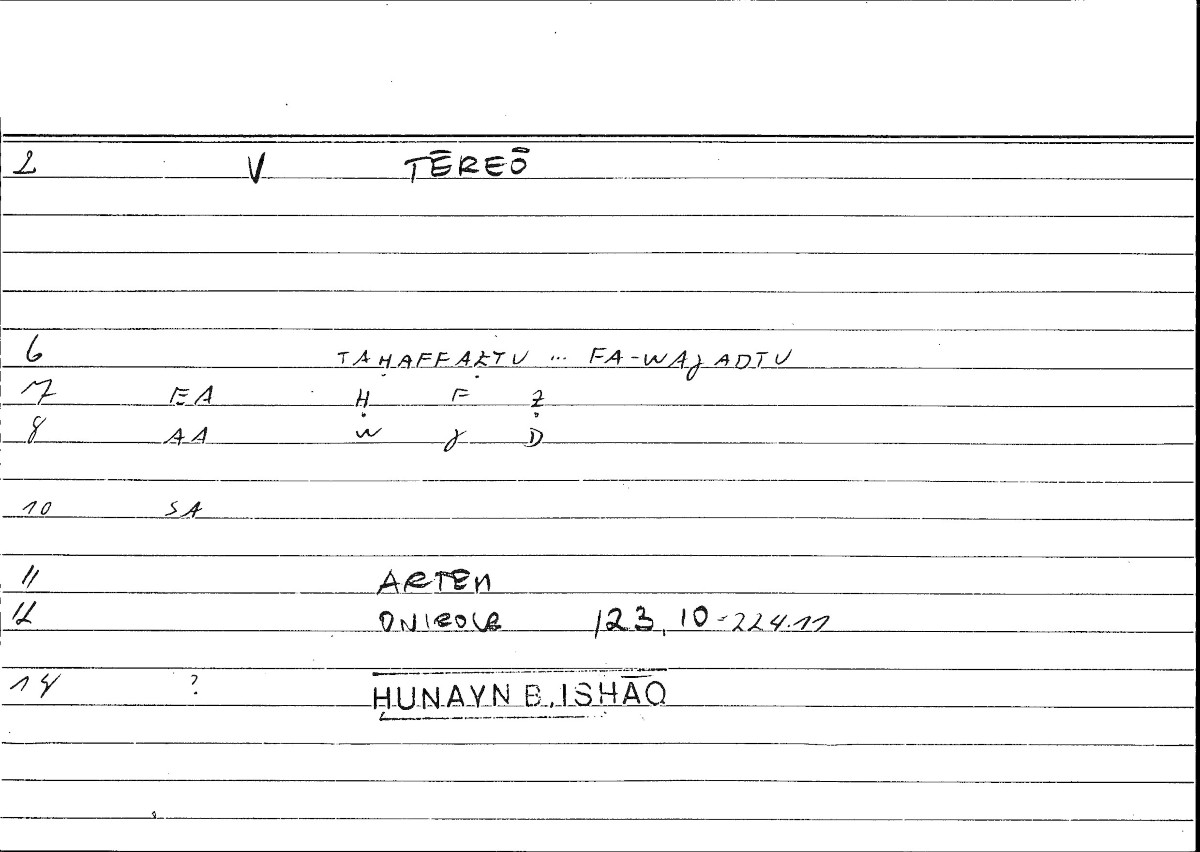 2 V TĒREŌ
6 TAḤAFFAẒTU ... FA-WAJADTU
7 EA Ḥ F Ẓ
8 AA W J D
10 SA
11 ARTEM
12 ONIROCR 123,10-224.11
14 ? ḤUNAYN B. ISḤĀQ